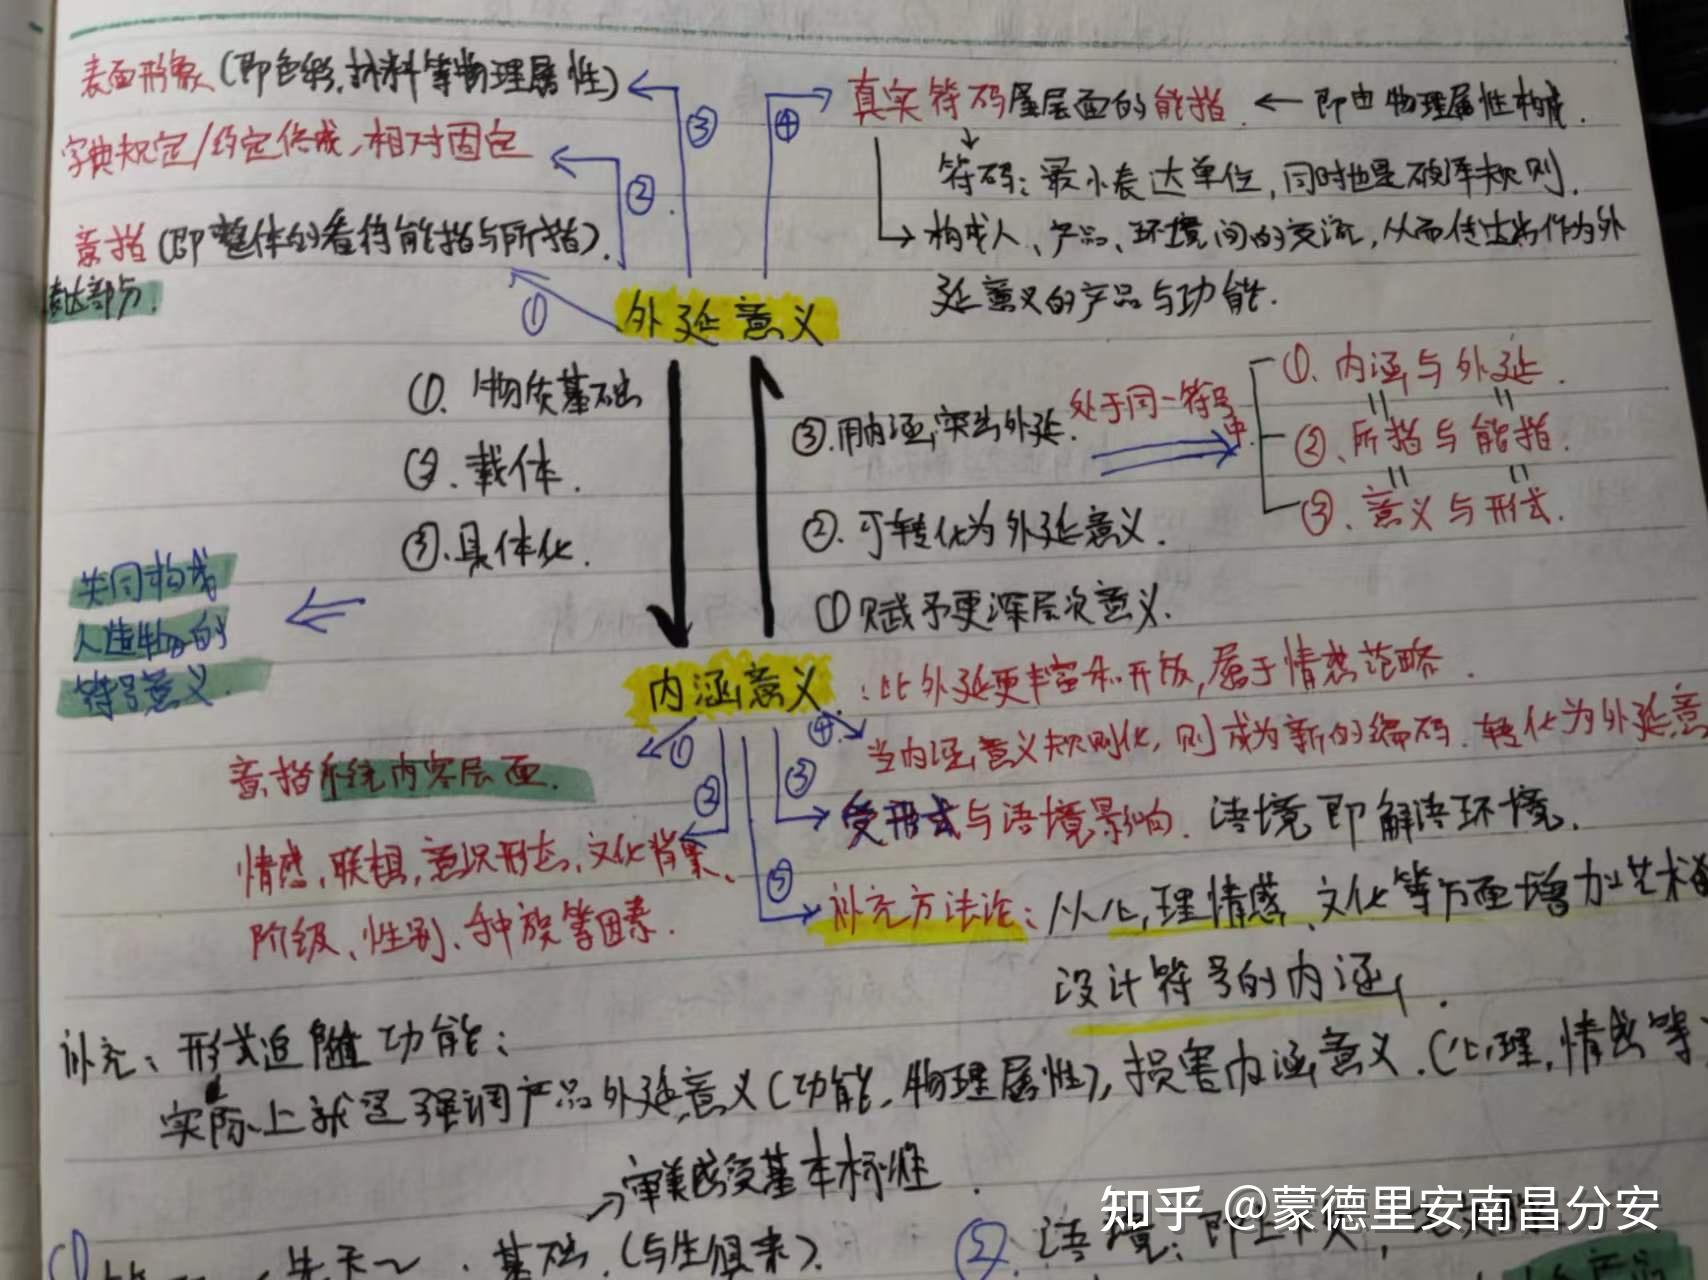 表面形象(即色彩,材料等物理属性)
③
④
真实符码层层面的能指
← 即由物理属性构成.
字典规定/约定俗成,相对固定
②
符码:最小表达单位,同时也是破译规则.
意指(即整体的看待能指与所指).
表达部分.
构成人、产品、环境间的交流,从而传达出作为外
延意义的产品与功能.
①
外延意义
①. 物质基础
②. 载体.
③. 具体化.
③.用内涵突出外延.
处于同一符号中
②.可转化为外延意义.
①赋予更深层次意义.
①. 内涵与外延.
②.所指与能指.
③. 意义与形式.
共同构成
人造物的
符号意义.
内涵意义
:比外延更丰富和开放,属于情感范略.
④
当内涵意义规则化,则成为新的编码.转化为外延意
①
意指系统内容层面.
②
③
受形式与语境影响. 语境即解语环境.
情感,联想,意识形态,文化背景、
阶级、性别、种族等因素.
⑤
补充方法论:从心理情感、文化等方面增加艺术
设计符号的内涵.
补充:形式追随功能:
实际上就是强调产品外延意义(功能,物理属性),损害内涵意义.(心理,情感等
→审美感受基本标准.
① 先天 基础.(与生俱来).
② 语境:即上下文,
产品
知乎 @蒙德里安南昌分安